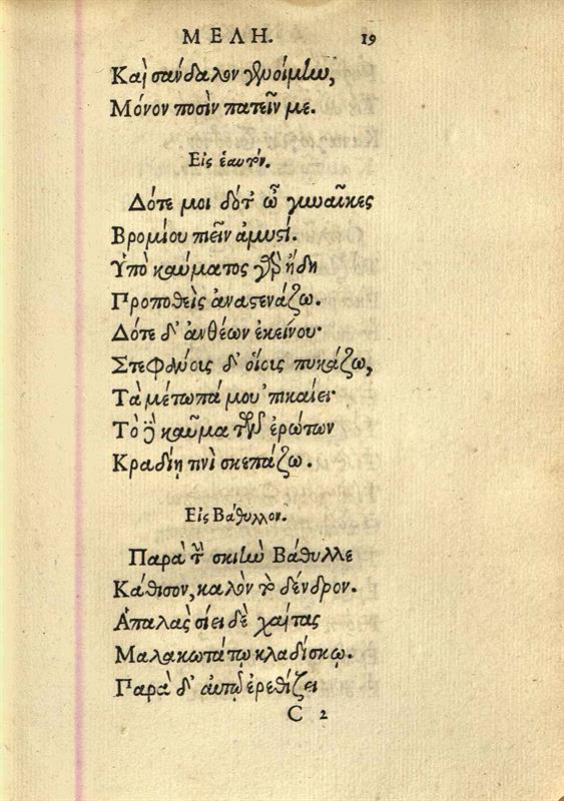 ΜΕΛΗ. 19
Καὶ σανδαλον γϟυοίμίω,
Μόνον ποσὶν πατεῖν με.
Εἰς ἑαυτόν.
Δότε μοι δότ' ὦ γυναῖκες
Βρομίου πιεῖν ἀμυστί.
Υπὸ καύματος γὰρ ἤδη
Προποθεὶς ἀναστενάζω.
Δότε δ' ἀνθέων ἐκείνου·
Στεφάνοις δ' οἵοις πυκάζω,
Τὰ μέτωπά μου 'πικαίει·
Τὸ δὲ καῦμα τῶν ἐρώτων
Κραδίη τινὶ σκεπάζω.
Εἰς Βάθυλλον.
Παρὰ τὴν σκιὴν Βάθυλλε
Κάθισον, καλὸν τὸ δένδρον.
Απαλὰς σίει δὲ χαίτας
Μαλακωτάτῳ κλαδίσκῳ.
Παρὰ δ' αὐτῷ ἐρεθίζει
C 2